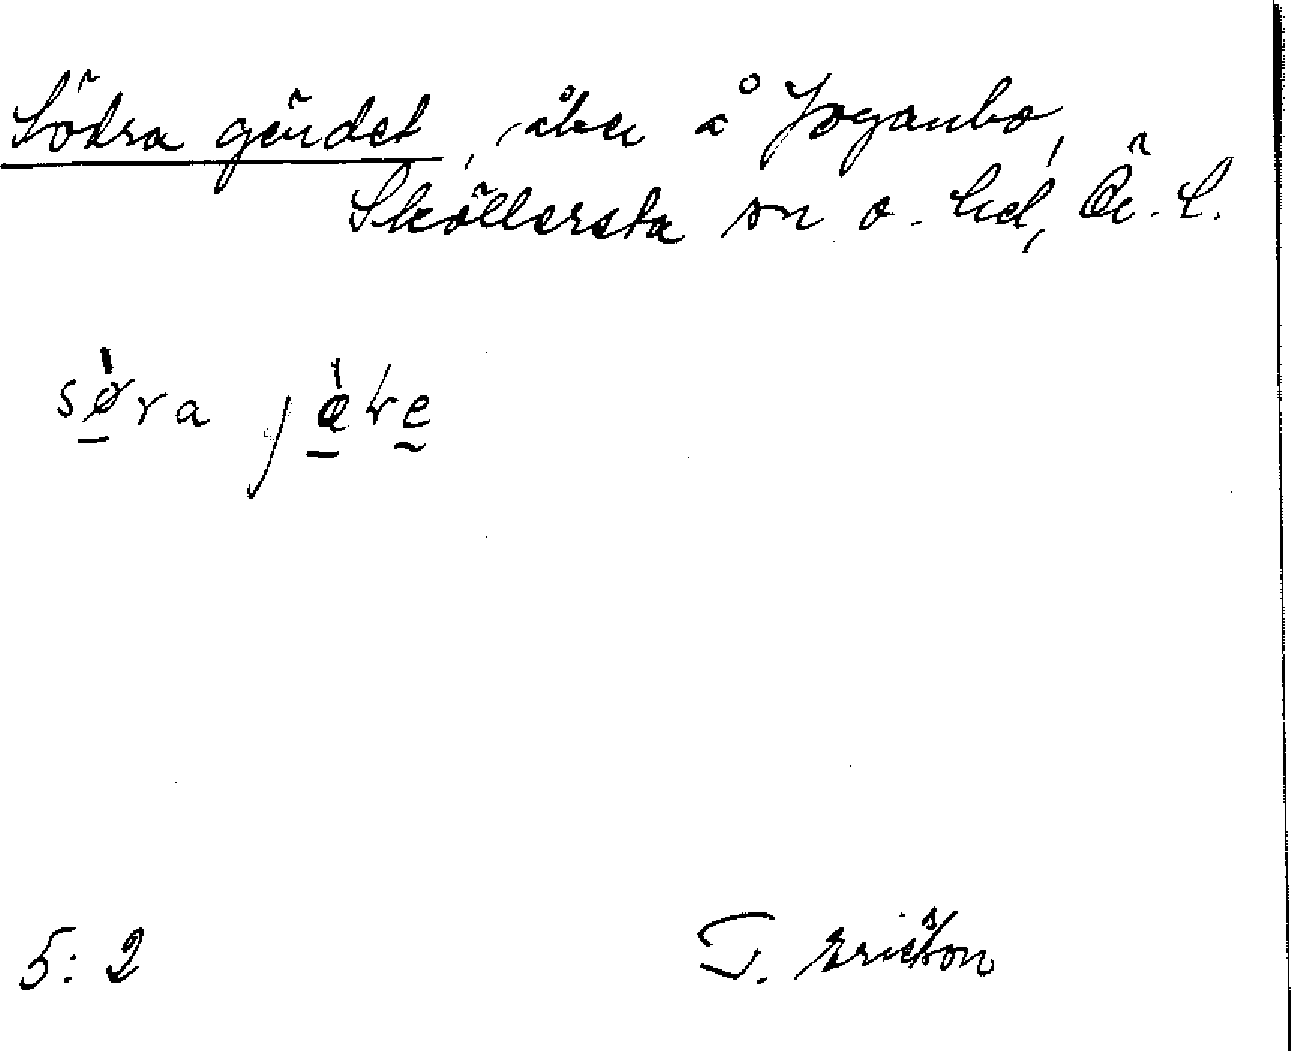 Södra gärdet, åker å Joganbo,
Sköllersta sn o. hd, Ör. l.
sø̀ra jæ̀ṛe
5:2
T. Ericsson